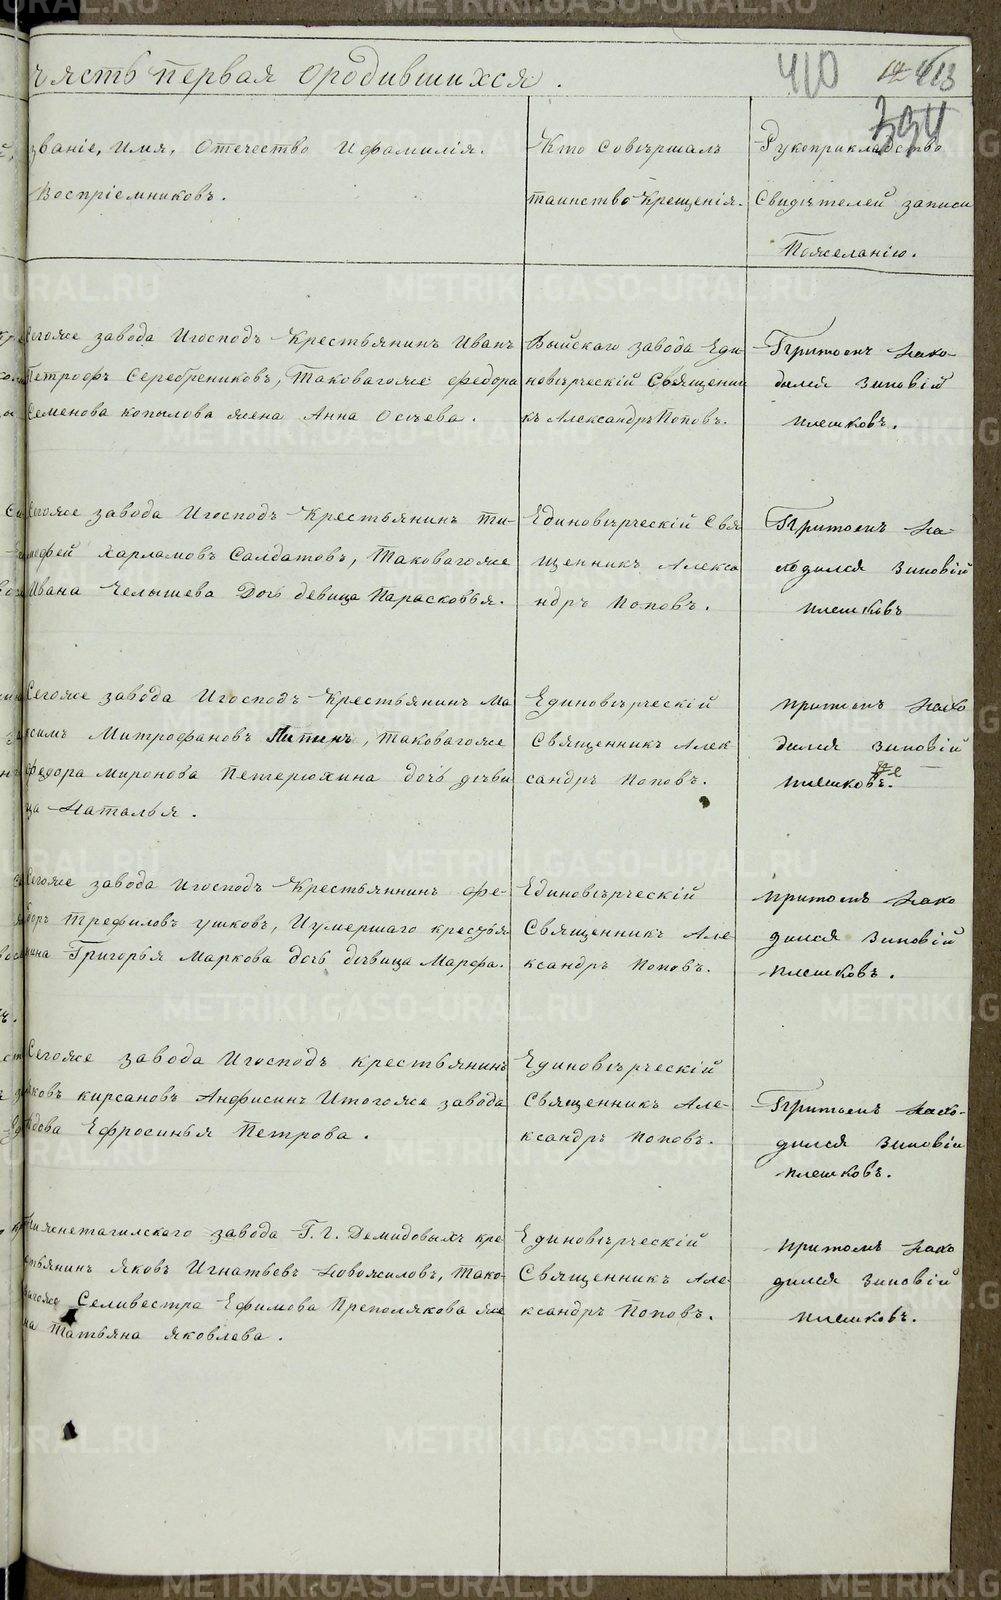 часть первая ородившихся.
410
413
394
званіе, Имя, Отечество Ифамилія.
Воспріемниковъ.
Кто совершалъ
таинство Крещенія.
Рукоприкладство
Свидѣтелей записи
Пожеланію.
Сегоже завода Игосподъ Крестьянинъ Иванъ
Петрофъ Серебрениковъ, Таковагоже федора
Семенова копылова жена Анна Осиева.
Выйскаго завода Еди-
новѣрческій Священни
къ Александръ Поповъ.
Притомъ нахо-
дился зиновій
плешковъ.
Сегоже завода Игосподъ Крестьянинъ ти-
мофей харламовъ Салдатовъ, Таковагоже
Ивана Челышева Дочь девица Парасковья.
Единовѣрческій Свя
щенникъ Алекса
ндръ Поповъ.
Притомъ на-
ходился зиновій
плешковъ
Сегоже завода Игосподъ Крестьянинъ Ма
ксимъ Митрофановъ Питинъ, таковагоже
федора миронова Петерюхина дочь дѣви
ца Наталья.
Единовѣрческій
Священникъ Алек
сандръ Поповъ.
притомъ нахо
дился зиновій
плешковъ.
Сегоже завода Игосподъ Крестьянинъ фе-
доръ трефиловъ ушковъ, Иумершаго крестья
нина Григорья Маркова дочь дѣвица Марфа.
Единовѣрческій
Священникъ Але
ксандръ Поповъ.
притомъ нахо
дился зиновій
плешковъ.
Сегоже завода Игосподъ крестьянинъ
яковъ кирсановъ Анфисинъ Итогоже завода
вдова Ефросинья Петрова.
Единовѣрческій
Священникъ Але-
ксандръ Поповъ.
Притомъ нахо-
дился зиновій
плешковъ.
Нижнетагилскаго завода Г.Г. Демидовыхъ кре
стьянинъ яковъ Игнатьевъ Новожиловъ, Тако-
вагоже Селивестра Ефимова Преполякова же
на Татьяна яковлева.
Единовѣрческій
Священникъ Але
ксандръ Поповъ.
притомъ нахо
дился зиновій
плешковъ.
METRIKI.GASO-URAL.RU